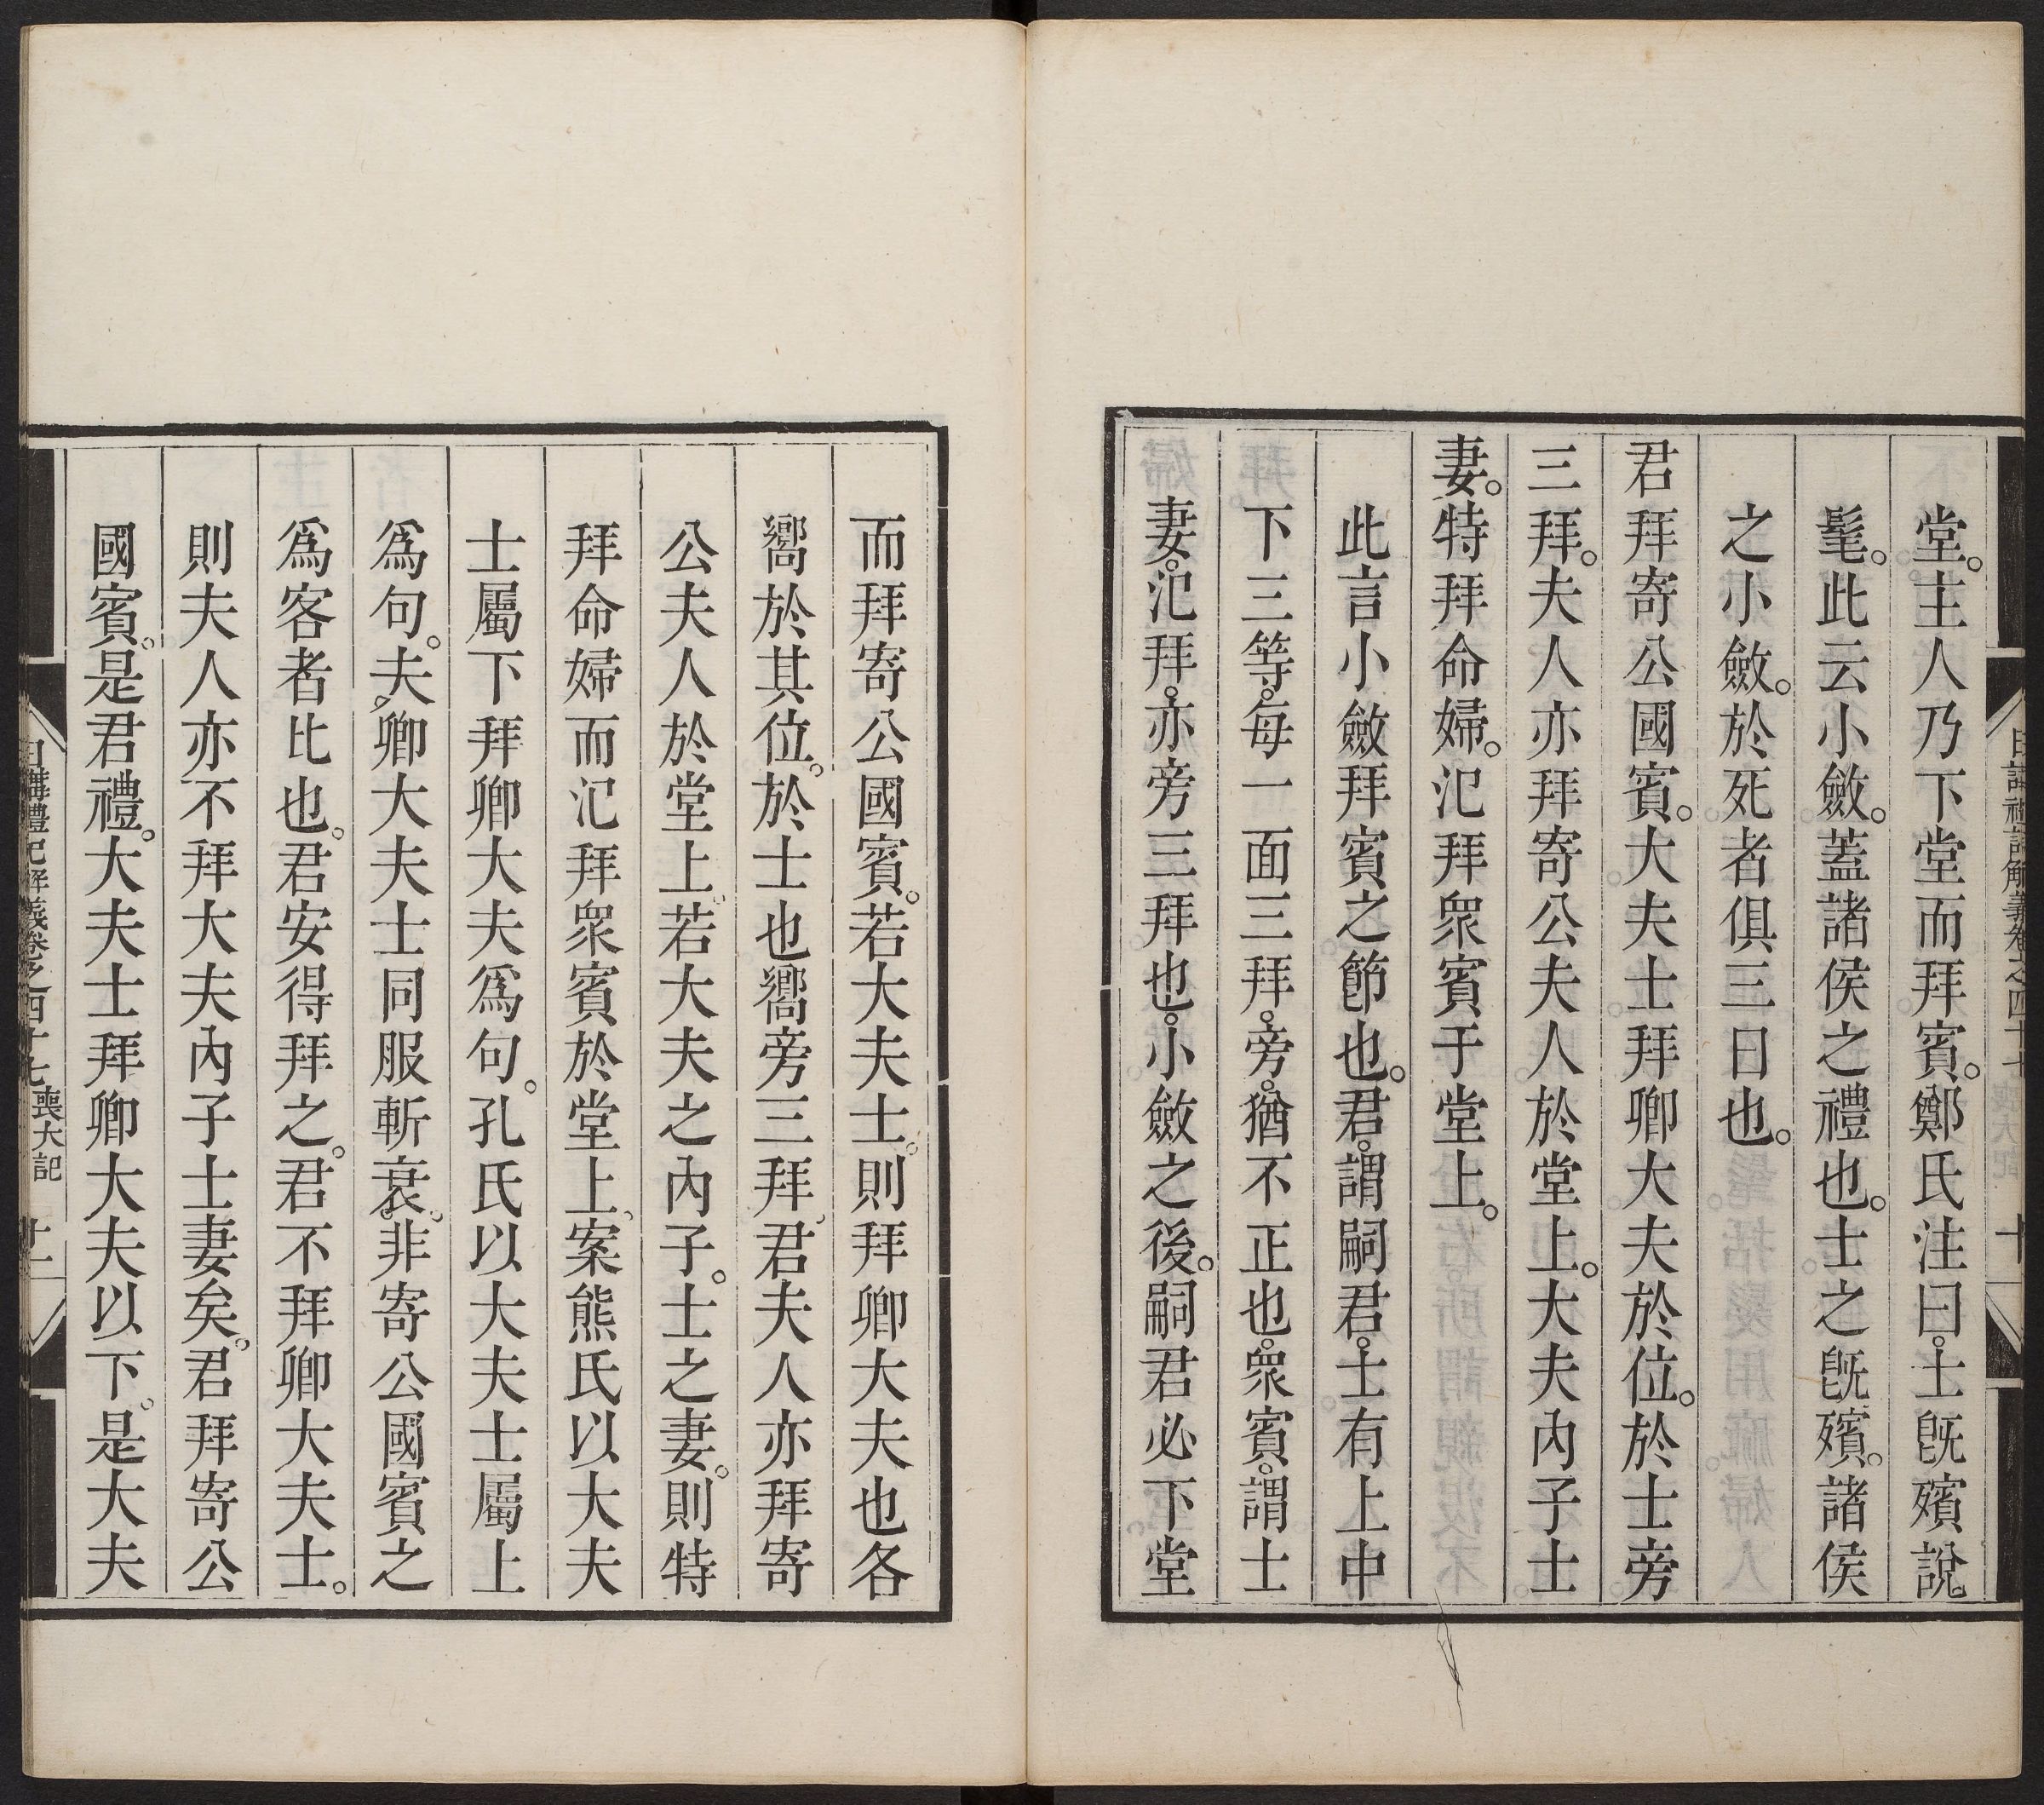 堂。主人乃下堂而拜賓。鄭氏注曰。士旣殯說
髦。此云小斂。蓋諸侯之禮也。士之旣殯。諸侯
之小斂。於死者俱三日也。
君拜寄公國賓。大夫士拜卿大夫於位。於士旁
三拜。夫人亦拜寄公夫人於堂上。大夫內子士
妻。特拜命婦。氾拜衆賓于堂上。
此言小斂拜賓之節也。君。謂嗣君。士有上中
下三等。每一面三拜。旁。猶不正也。衆賓。謂士
妻。氾拜。亦旁三拜也。小斂之後。嗣君必下堂
日講禮記解義卷之四十七 喪大記 十
而拜寄公國賓。若大夫士。則拜卿大夫也各
嚮於其位。於士也嚮旁三拜。君夫人亦拜寄
公夫人於堂上。若大夫之內子。士之妻。則特
拜命婦而氾拜衆賓於堂上。案熊氏以大夫
士屬下拜卿大夫爲句。孔氏以大夫士屬上
爲句。夫。卿大夫士同服斬衰。非寄公國賓之
爲客者比也。君安得拜之。君不拜卿大夫士。
則夫人亦不拜大夫內子士妻矣。君拜寄公
國賓。是君禮。大夫士拜卿大夫以下。是大夫
日講禮記解義卷之四十七 喪大記 十一